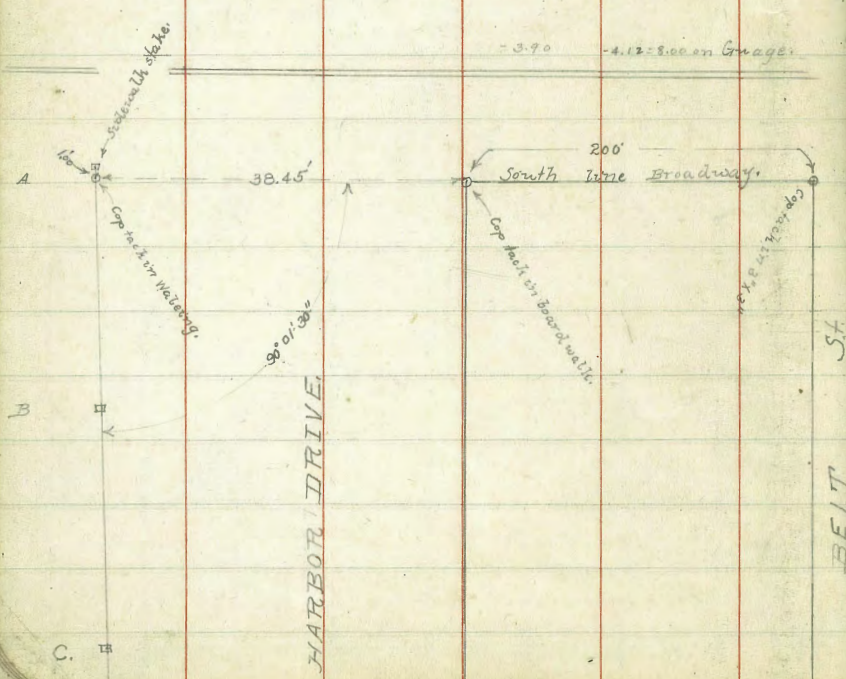 -3.90 -4.12=8.00 on Guage.
Sidewalk stake.
1.00'
A
38.45'
200'
South line Broadway.
Cop tack in Waleing.
Cop tack in boardwalk.
Cop tack in 3"x3"
90° 01' 30"
B
HARBOR DRIVE.
BELT St.
C.